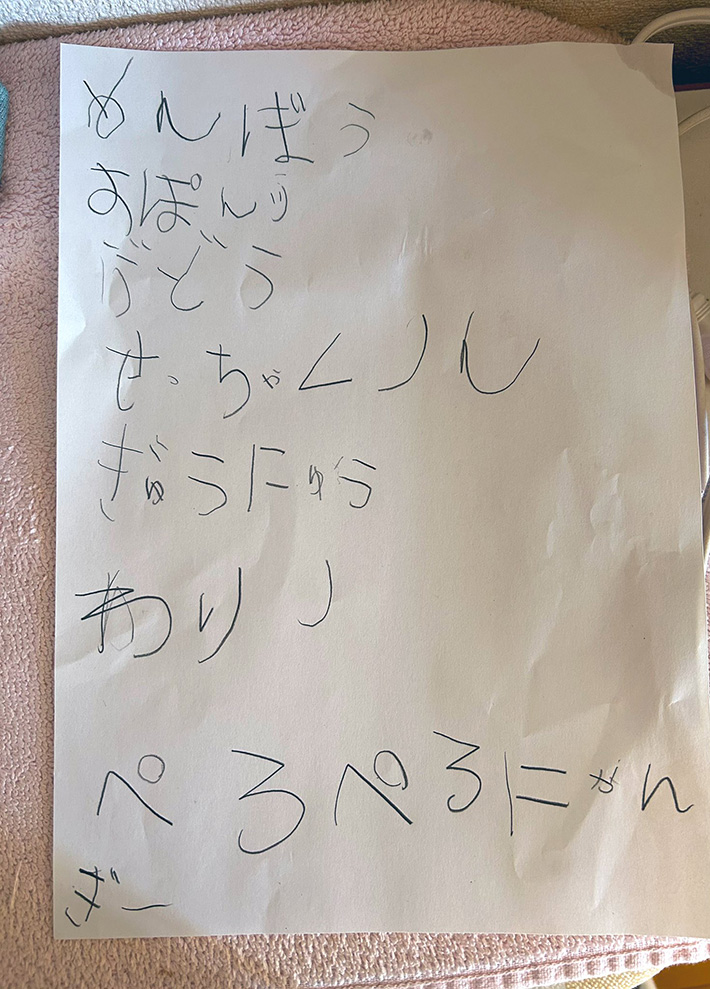 めんぼう
すぽんじ
ぶどう
せっちゃくノん
ぎゅうにゅう
わりノ
ぺろぺろにゃん
ざー